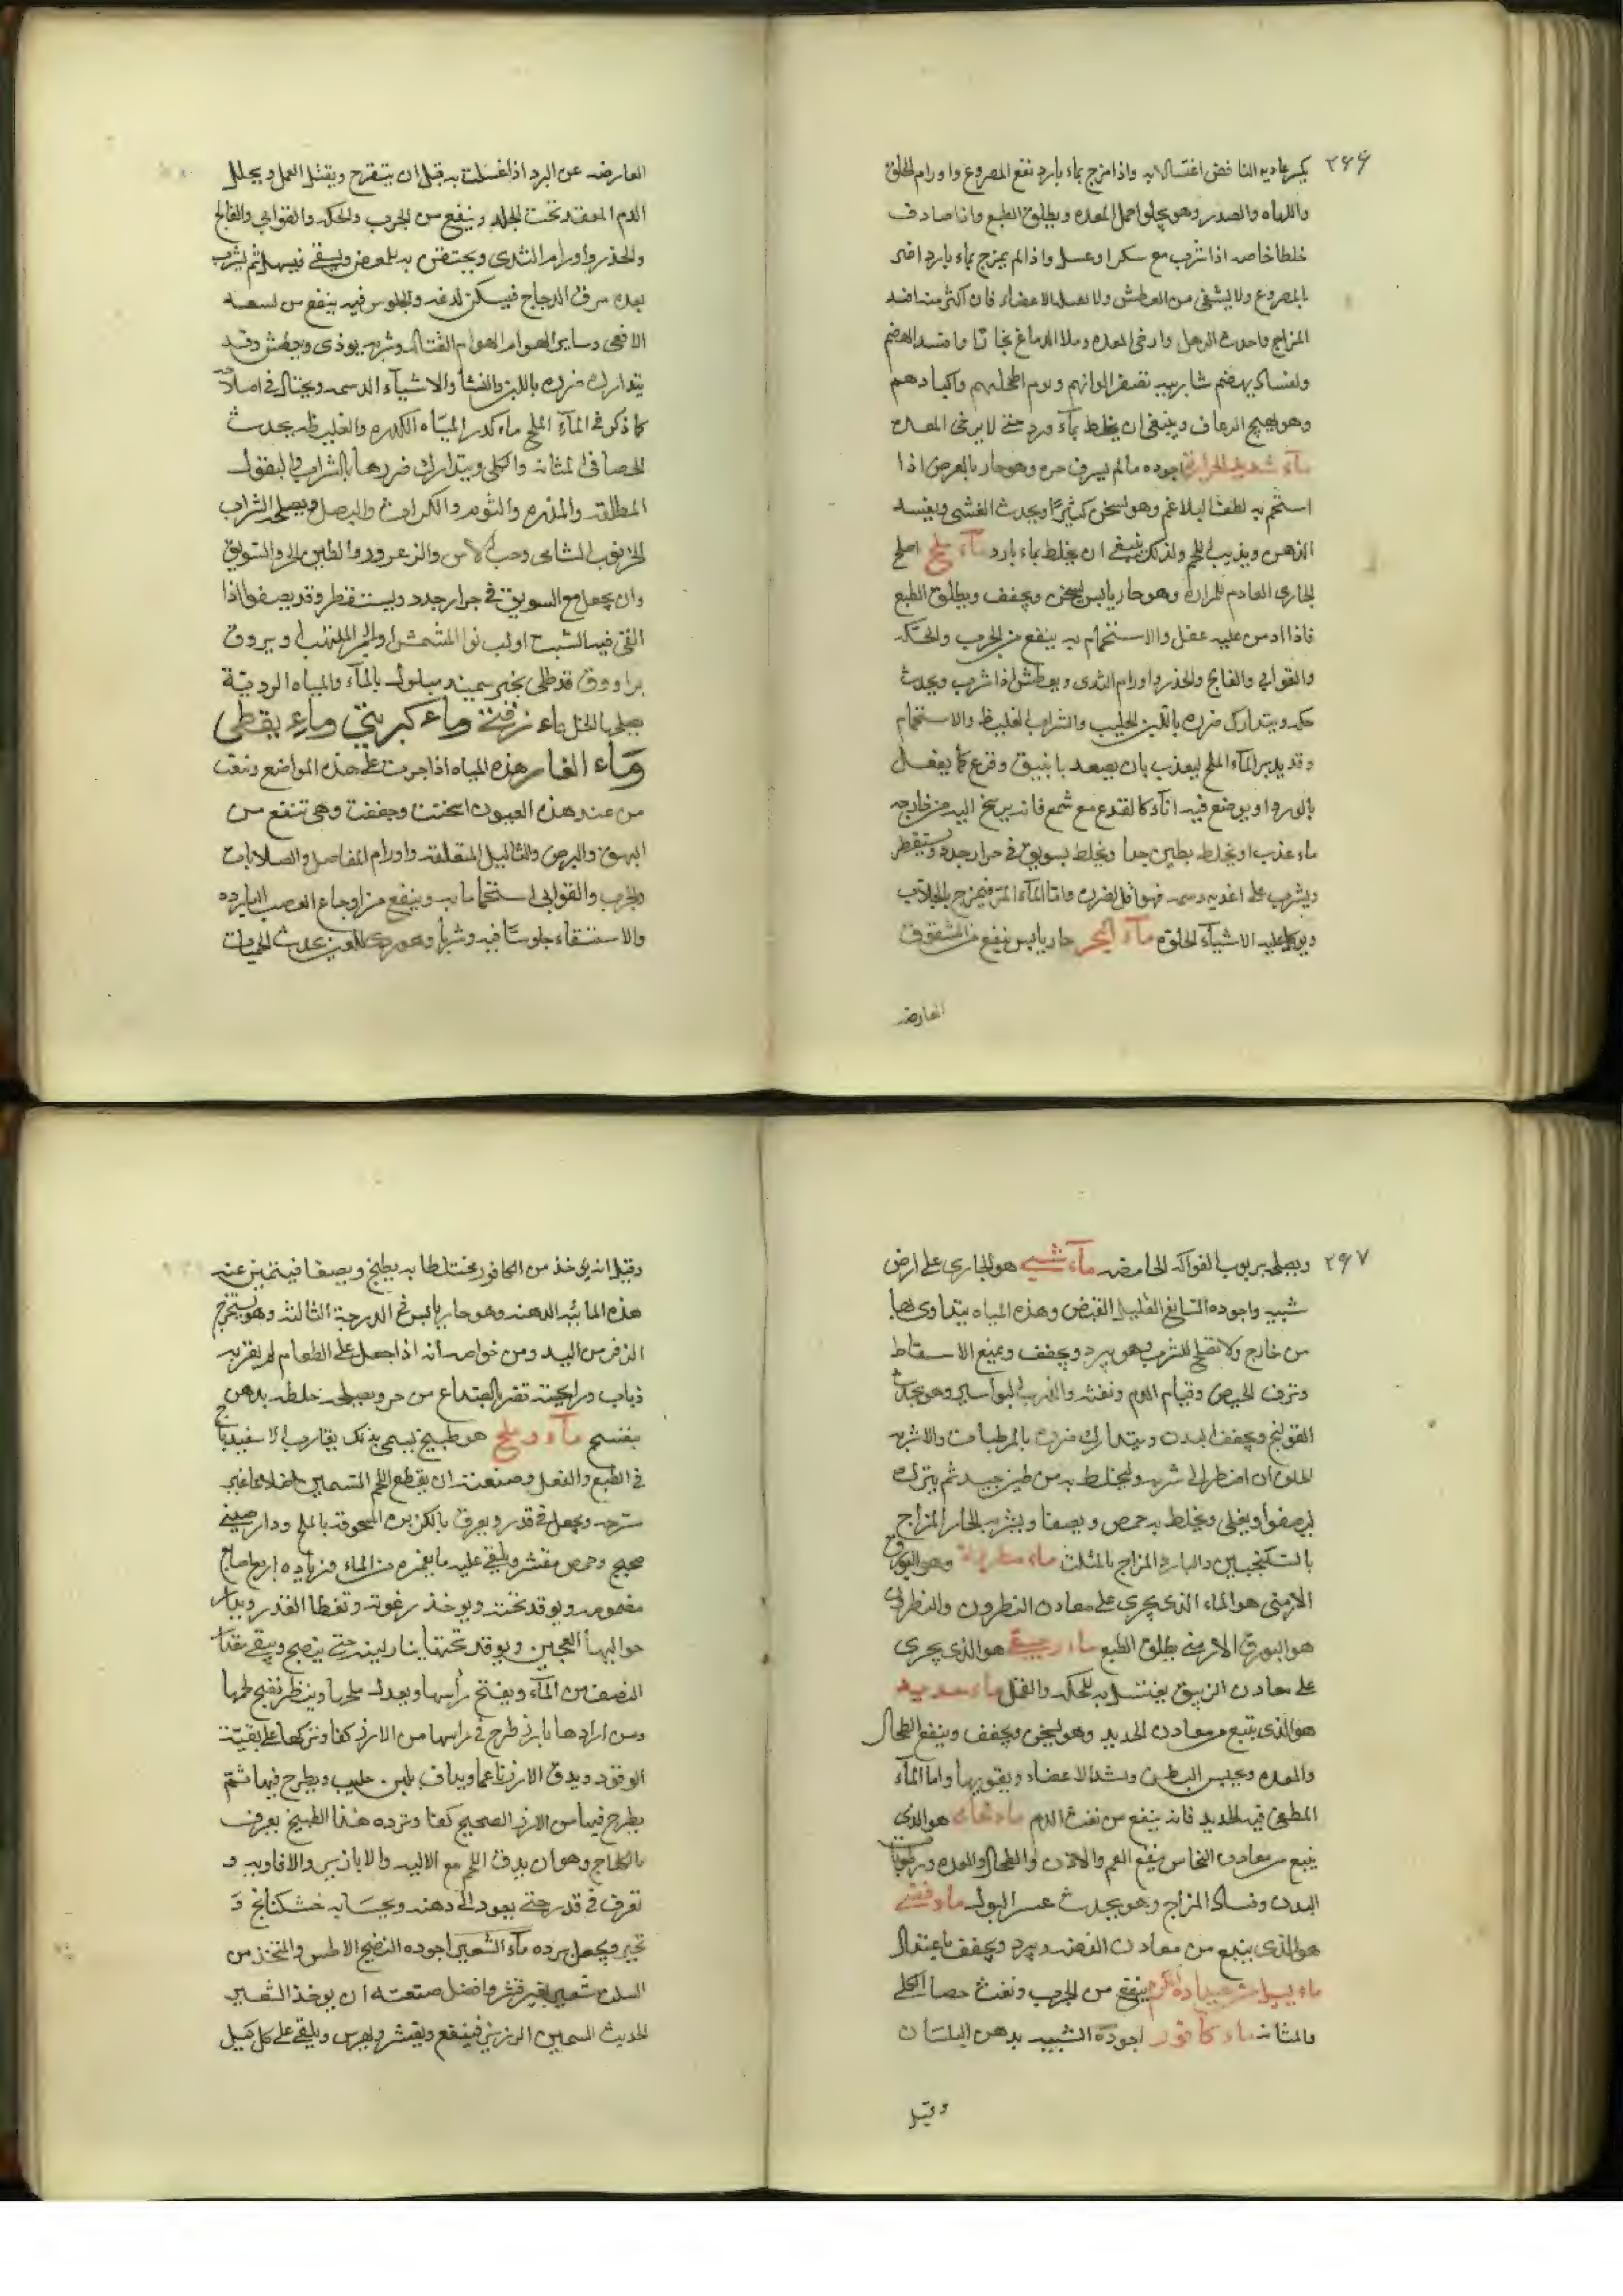 ٢٦٦
يكسر عاديه النافض اغتسالا به واذا مزج بماء بارد نفع المصروع واورام الحلق
واللهاه والصدر وهو يجلو احمل المعده ويطلق الطبع واذا صادف
خلطا خاصه اذا شرب مع سكر او عسل واذا لم يمزج بماء بارد اضر
بالمصروع ولا يشفى من العطش ولا الاعضاء فان اكثر منه افسد
المزاج واحدث الرهل وارخى المعده وملا الدماغ بخارا وافسد الهضم
ولفساد هضم شاربيه تصفر الوانهم وترم اطحلهم واكبادهم
وهو يهيج الرعاف وينبغى ان يخلط بماء ورد حتى لا يرخى المعده
ماء شديد الحراره اجوده مالم يسرف حره وهو حار بالعرض اذا
استحم به لطف البلاغم وهو يسخن كثيرا ويحدث الغشى ويفسد
الذهن ويذيب اللحم ولذلك ينبغى ان يخلط بماء بارد ماء ملح اصلح
الجارى العادم المراره وهو حار يابس يسخن ويجفف ويطلق الطبع
فاذا ادمن عليه عقل والاستحمام به ينفع من الجرب والحكه
والقوابى والفالج والخدر واورام الثدى ويعطش اذا شرب ويحدث
حكه ويتدارك ضرره باللبن الحليب والشراب الغليظ والاستحمام
وقد يدبر الماء الملح ليعذب بان يصعد بانبيق وقرع كما يفعل
بالورد او يوضع فيه اناء كالقدح مع شمع فانه يرشح اليه من خارجه
ماء عذب او يخلط بطين جدا ويخلط بسويق فى جرار جدد ويستقطر
ويشرب على اغذيه دسمه فهو اقل لضرره واما الماء المر فيمزج بالجلاب
ويوكل عليه الاشياء الحلوه ماء البحر حار يابس ينفع من الشقوق
العارضه
العارضه عن البرد اذا غسلت به قبل ان يتقرح ويقتل القمل ويحلل
الدم المنعقد تحت الجلد وينفع من الجرب والحكه والقوابى والفالج
والخدر واورام الثدى ويحتقن به للمغص ويسقى فيسهل ثم يشرب
بعده مرق الدجاج فيسكن لدغه والجلوس فيه ينفع من لسعه
الافعى وساير الهوام الهوام القتاله وشربه يوذى ويعطش وقد
يتدارك ضرره باللبن والنشا والاشياء الدسمه ويحتال فى اصلاحه
كما ذكر فى الماء الملح ماء كدر المياه الكدره والغليظه يحدث
الحصا فى المثانه والكلى ويتدارك ضررها بالشراب والبقول
المطلقه والمدره والثوم والكراث والبصل ويصلحه الشراب
الخرنوب الشامى وحب الاس والزعرور والطين الحر والسويق
وان يجعل مع السويق فى جرار جدد ويستقطر وقد يصفوا اذا
القى فيه الشب او لب نوا المشمش او الجمر الملتهب او يروق
براووق قد طلى بخبز سميد مبلول بالماء والمياه الرديه
يصلحها الخل ماء زفتى وماء كبريتى وماء نفطى
وماء القار هذه المياه اذا جرت على هذه المواضع ونبعت
من عند هذه العيون اسخنت وجففت وهى تنفع من
البهق والبرص والثاليل المتعلقه واورام المفاصل والصلابات
والجرب والقوابى استحماما به وينفع من اوجاع العصب البارده
والاستسقاء جلوسا فيه وشربا وهو ردى للعين يحدث الحميات
٢٦٧
ويصلحه بربوب الفواكه الحامضه ماء شبى هو الجارى على ارض
شبيه واجوده السايغ القليل القبض وهذه المياه يتداوى بها
من خارج ولا تصلح للشرب وهو يبرد ويجفف ويمنع الاسقاط
ونزف الحيض وقيام الدم ونفثه والذرب البواسير وهو يحدث
القولنج ويجفف البدن ويتدارك ضرره بالمرطبات والاشربه
الحلوه ان اضطر الى شربه وليخلط به من طين جيد ثم يترك
ليصفوا ويغلى ويخلط به حمص ويصفا ويشربه الحار المزاج
بالسكنجبين والبارد المزاج بالمثلث ماء نطرونى وهو البورق
الارمنى هو الماء الذى يجرى على معادن النطرون والنطرون
هو البورق الارمنى يطلق الطبع ماء زيبقى هو الذى يجرى
على معادن الزيبق يغتسل به للحكه والقمل ماء حديد
هو الذى ينبع من معادن الحديد وهو يسخن ويجفف وينفع الطحال
والمعده ويحبس البطن ويشد الاعضاء ويقويها واما الماء
المطفى فيه الحديد فانه ينفع من نفث الدم ماء نحاسى هو الذى
ينبع من معادن النحاس ينفع الفم والاذن والطحال والمعده ورطوبات
البدن وفساد المزاج وهو يحدث عسر البول ماء فضى
هو الذى ينبع من معادن الفضه يبرد ويجفف باعتدال
ماء يسيل من الكرم ينفع من الجرب ونفث حصاء الكلى
والمثانه ماء كافور اجوده الشبيه بدهن البلسان
وقيل
وقيل انه يوخذ من الكافور مختلطا به يطبخ ويصفا فيتميز عنه
هذه المائيه الدهنه وهو حار يابس فى الدرجه الثالثه وهو يستخرج
الزفر من اليد ومن خواصه انه اذا جعل على الطعام لم يقربه
ذباب ورايحته تضر بالصداع من حر ويصلحه خلطه بدهن
بنفسج ماء وملح هو طبيخ يسمى بذلك يقارب الاسفيدباج
فى الطبع والفعل وصنعته ان يقطع اللحم السمين اضلاعا غير
مشرحه ويجعل فى قدر ويعرق بالكزبره المسحوقه بالملح ودارصينى
صحيح وحمص مقشر ويلقى عليه ما يغمره من الماء وزياده اربع اصابع
مضمومه ويوقد تحته ويوخذ رغوته وتغطا القدر ويدار
حواليها العجين ويوقد تحتها بنار لينه حتى ينضج ويبقى مقدار
النصف من الماء ويفتح رأسها ويعدل ملحها وينظر نضج لحمها
ومن ارادها بارز طرح فى راسها من الارز كفا وتركها على بقيه
الوقود ويدق الارز ناعما ويداف بلبن حليب ويطرح فيها ثم
يطرح فيها من الارز الصحيح كفا وترده هذا الطبيخ يعرف
وهو ان يدق اللحم مع الاليه والابازير والافاويه و
تعرق فى قدر حتى يعود الى دهنه ويحشا به خشكنانج و
ماء الشعير اجوده النضيج الاملس والمتخذ من
السلت شعير بغير قشر وافضل صنعته ان يوخذ الشعير
الحديث السمين الرزين فينقع ويقشر ويهرس ويلقى على كل كيل